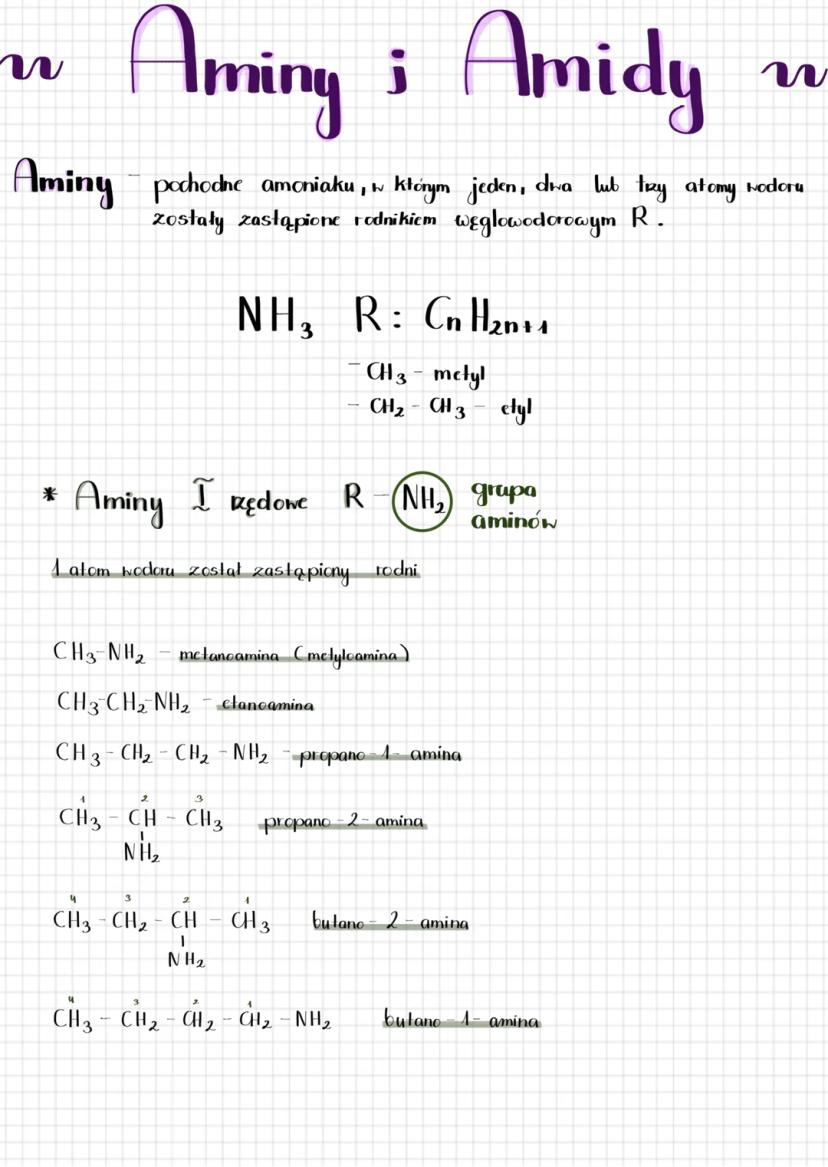 Aminy i Amidy
Aminy - pochodne amoniaku, w którym jeden, dwa lub trzy atomy wodoru
zostały zastąpione rodnikiem węglowodorowym R.
NH₃ R: CₙH₂ₙ₊₁
- CH₃ - metyl
- CH₂ - CH₃ - etyl
* Aminy I rzędowe R - NH₂ grupa
aminów
1 atom wodoru został zastąpiony rodni
CH₃-NH₂ - metanoamina (metyloamina)
CH₃-CH₂-NH₂ - etanoamina
CH₃ - CH₂ - CH₂ - NH₂ - propano-1-amina
1 2 3
CH₃ - CH - CH₃ propano-2-amina
NH₂
4 3 2 1
CH₃ - CH₂ - CH - CH₃ butano-2-amina
NH₂
4 3 2 1
CH₃ - CH₂ - CH₂ - CH₂ - NH₂ butano-1-amina